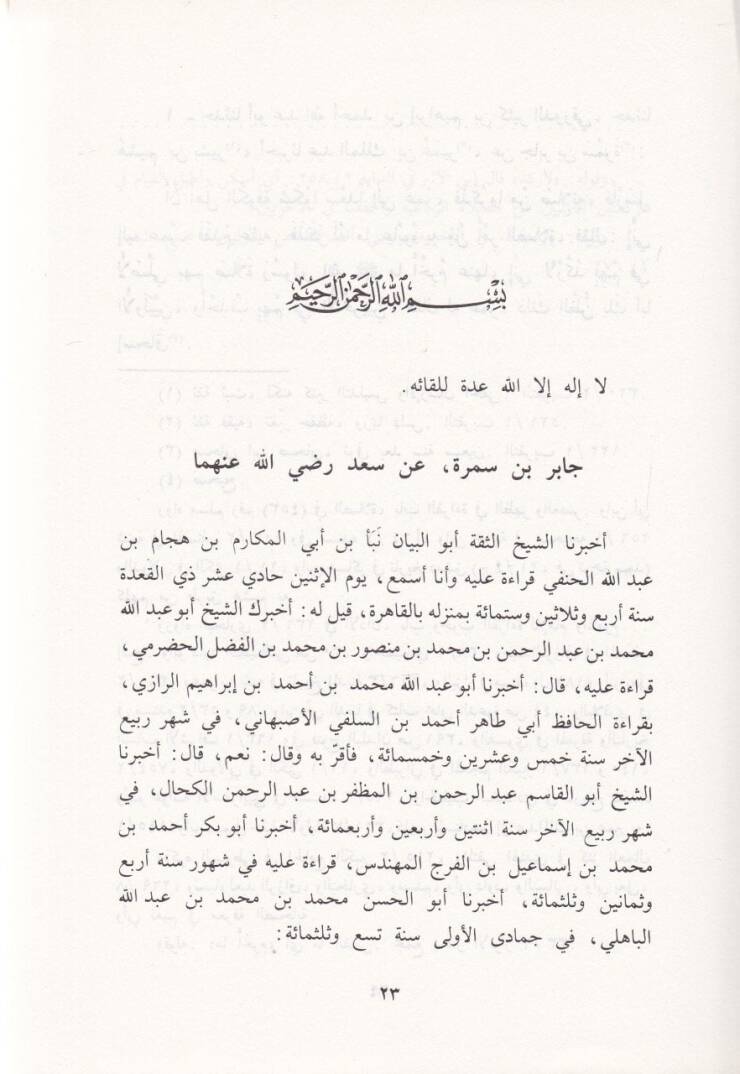 بسم الله الرحمن الرحيم
لا إله إلا الله عدة للقائه.
جابر بن سمرة، عن سعد رضي الله عنهما
أخبرنا الشيخ الثقة أبو البيان نَبَأ بن أبي المكارم بن هجام بن
عبد الله الحنفي قراءة عليه وأنا أسمع، يوم الإثنين حادي عشر ذي القعدة
سنة أربع وثلاثين وستمائة بمنزله بالقاهرة، قيل له: أخبرك الشيخ أبو عبد الله
محمد بن عبد الرحمن بن محمد بن منصور بن محمد بن الفضل الحضرمي،
قراءة عليه، قال: أخبرنا أبو عبد الله محمد بن أحمد بن إبراهيم الرازي،
بقراءة الحافظ أبي طاهر أحمد بن السلفي الأصبهاني، في شهر ربيع
الآخر سنة خمس وعشرين وخمسمائة، فأقرّ به وقال: نعم، قال: أخبرنا
الشيخ أبو القاسم عبد الرحمن بن المظفر بن عبد الرحمن الكحال، في
شهر ربيع الآخر سنة اثنتين وأربعين وأربعمائة، أخبرنا أبو بكر أحمد بن
محمد بن إسماعيل بن الفرج المهندس، قراءة عليه في شهور سنة أربع
وثمانين وثلثمائة، أخبرنا أبو الحسن محمد بن محمد بن عبد الله
الباهلي، في جمادى الأولى سنة تسع وثلثمائة:
٢٣